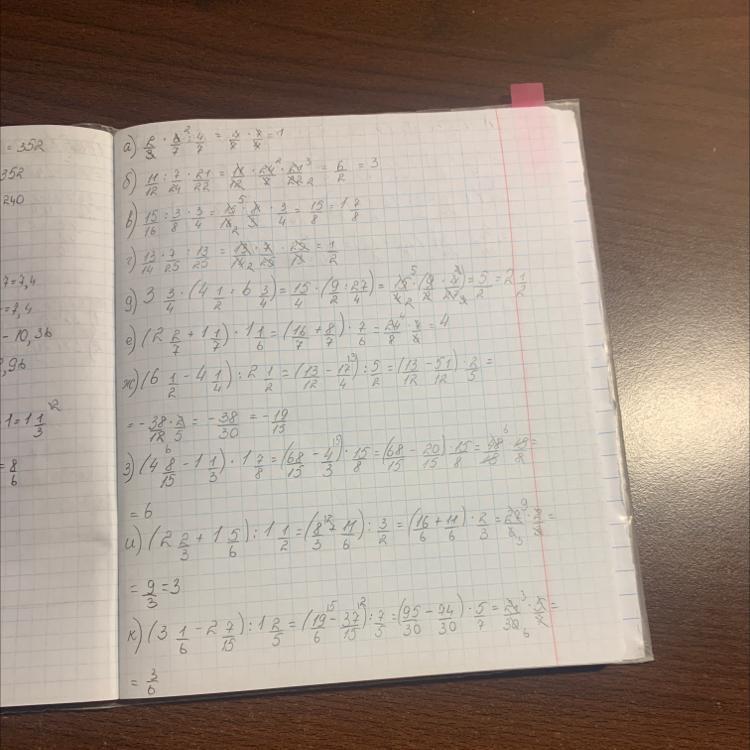 = 352
352
240
7 = 7,4
= 7,4
- 10,36
,96
1 = 1 1/3
= 8/6
а) 2/3 · 6/7 : 4/7 = 4/7 · 7/4 = 1
б) 11/12 : 7/24 · 21/22 = 11/12 · 24/7 · 21/22 = 6/2 = 3
в) 15/16 : 3/8 · 3/4 = 15/16 · 8/3 · 3/4 = 15/8 = 1 7/8
г) 13/14 · 7/25 : 13/25 = 13/14 · 7/25 · 25/13 = 1/2
д) 3 3/4 · (4 1/2 : 6 3/4) = 15/4 · (9/2 : 27/4) = 15/4 · (9/2 · 4/27) = 5/2 = 2 1/2
е) (2 2/7 + 1 1/7) · 1 1/6 = (16/7 + 8/7) · 7/6 = 24/8 · 8/6 = 4
ж) (6 1/2 - 4 1/4) : 2 1/2 = (13/12 - 17/4) : 5/2 = (13/12 - 51/12) · 2/5 =
= - 38/12 · 2/5 = - 38/30 = - 19/15
з) (4 8/15 - 1 1/3) · 1 7/8 = (68/15 - 4/3) · 15/8 = (68/15 - 20/15) · 15/8 = 48/15 · 15/8 =
= 6
и) (2 2/3 + 1 5/6) : 1 1/2 = (8/3 + 11/6) : 3/2 = (16/6 + 11/6) · 2/3 = 27/6 · 2/3 =
= 9/3 = 3
к) (3 1/6 - 2 7/15) : 1 2/5 = (19/6 - 37/15) : 7/5 = (95/30 - 74/30) · 5/7 = 21/30 · 5/7 =
= 3/6